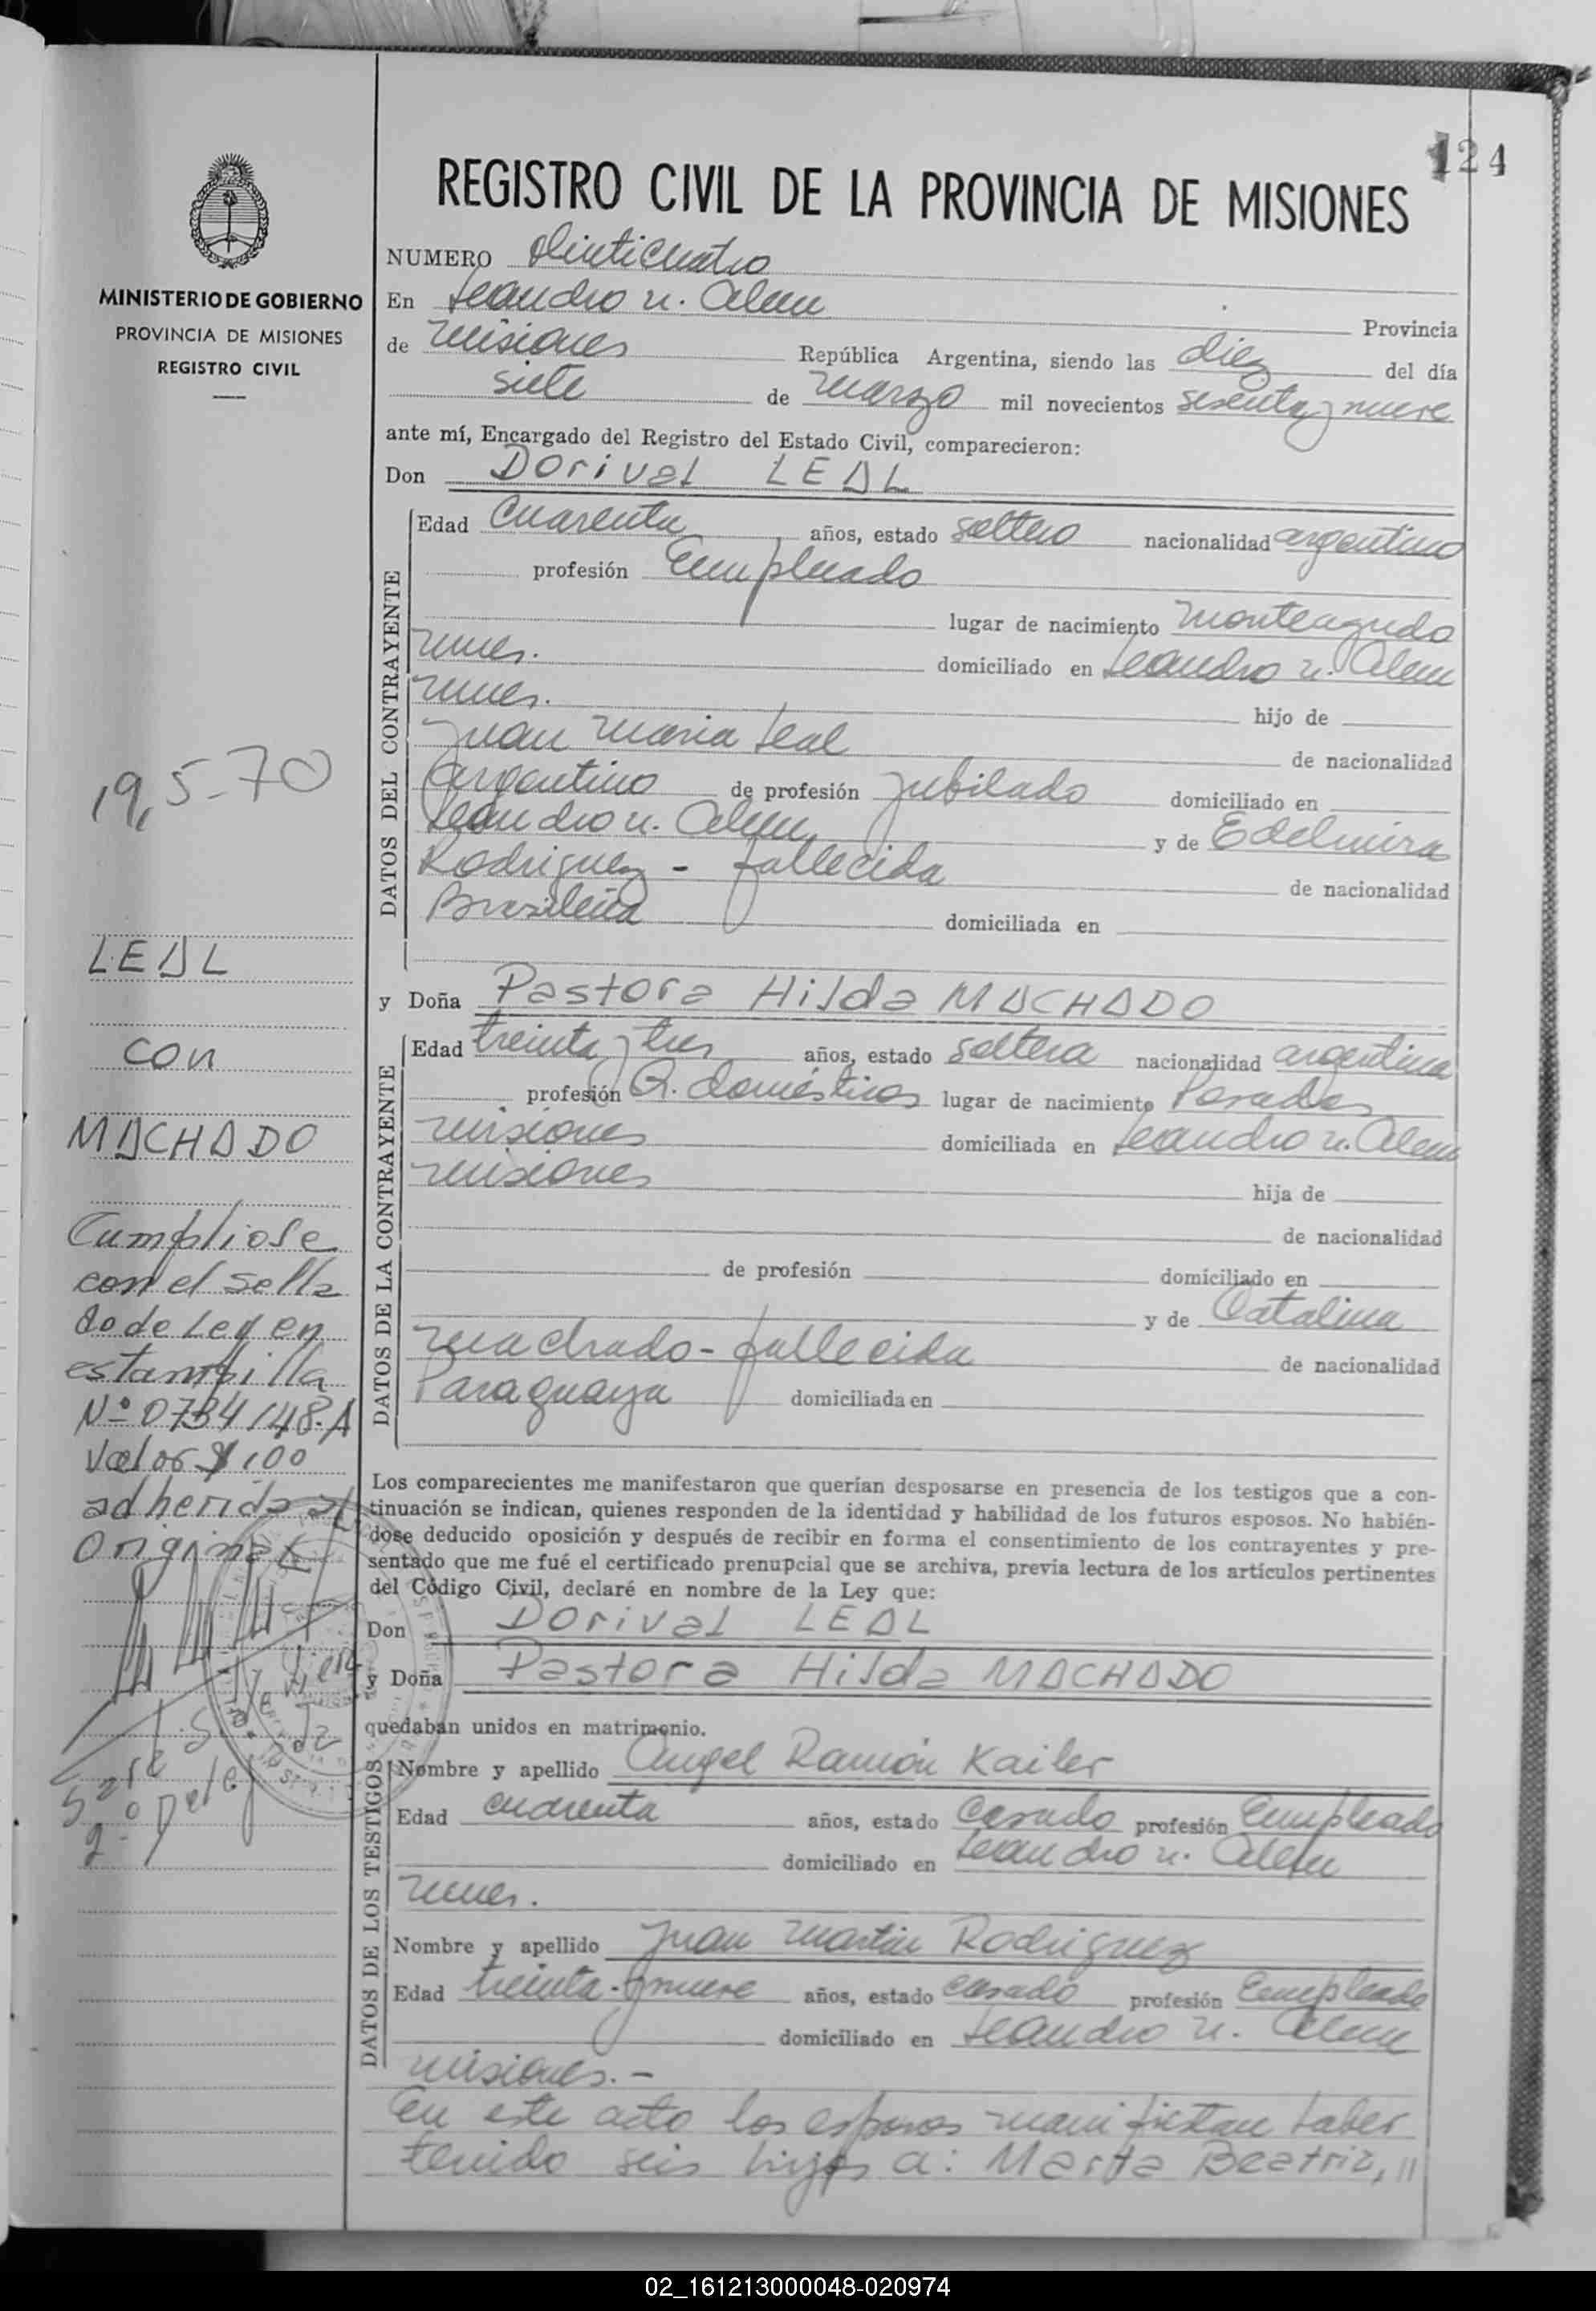 124
REGISTRO CIVIL DE LA PROVINCIA DE MISIONES
MINISTERIO DE GOBIERNO
PROVINCIA DE MISIONES
REGISTRO CIVIL
NUMERO Veinticuatro
En Leandro N. Alem Provincia
de Misiones República Argentina, siendo las diez del día
siete de marzo mil novecientos sesenta y nueve
ante mí, Encargado del Registro del Estado Civil, comparecieron:
Don Dorival LEAL
DATOS DEL CONTRAYENTE
Edad Cuarenta años, estado soltero nacionalidad argentino
profesión Empleado
lugar de nacimiento Monteagudo
Mnes. domiciliado en Leandro N. Alem
Mnes. hijo de
Juan Maria Leal de nacionalidad
argentino de profesión jubilado domiciliado en
Leandro N. Alem y de Edelmira
Rodriguez - fallecida de nacionalidad
Brasileña domiciliada en
y Doña Pastora Hilda MACHADO
DATOS DE LA CONTRAYENTE
Edad treinta y tres años, estado soltera nacionalidad argentina
profesión Q. domésticos lugar de nacimiento Posadas
Misiones domiciliada en Leandro N. Alem
Misiones hija de
de nacionalidad
de profesión domiciliado en
y de Catalina
Machado - fallecida de nacionalidad
Paraguaya domiciliada en
Los comparecientes me manifestaron que querían desposarse en presencia de los testigos que a con-
tinuación se indican, quienes responden de la identidad y habilidad de los futuros esposos. No habién-
dose deducido oposición y después de recibir en forma el consentimiento de los contrayentes y pre-
sentado que me fué el certificado prenupcial que se archiva, previa lectura de los artículos pertinentes
del Código Civil, declaré en nombre de la Ley que:
Don Dorival LEAL
y Doña Pastora Hilda MACHADO
quedaban unidos en matrimonio.
DATOS DE LOS TESTIGOS
Nombre y apellido Angel Ramón Kailer
Edad cuarenta años, estado Casado profesión Empleado
domiciliado en Leandro N. Alem
Mnes.
Nombre y apellido Juan Martin Rodriguez
Edad treinta y nueve años, estado casado profesión Empleado
domiciliado en Leandro N. Alem
Misiones.-
En este acto los esposos manifiestan haber
tenido seis hijos a: Marta Beatriz, //
19,5-70
LEAL
con
MACHADO
Cumpliose
con el sella
do de Ley en
estampilla
Nº 0734148-A
Valor $ 100
adherida al
Original
02_161213000048-020974